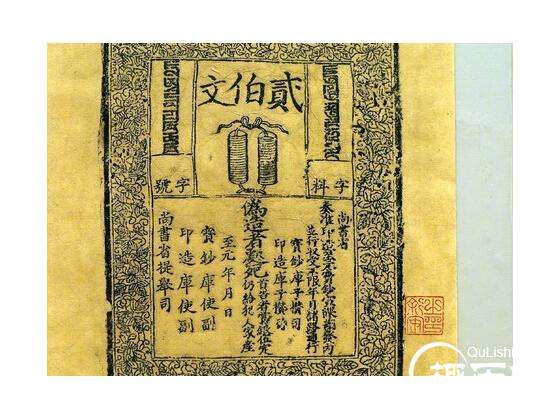 貳伯文
字料
字號
尚書省
奏准印造至元寶鈔宣課差役內
並行收受不限年月諸路通行
寶鈔庫子攢司
印造庫子攢司
偽造者處死
首告者賞銀伍定
仍給犯人家產
至元 年 月 日
寶鈔庫使副
印造庫使副
尚書省提舉司
QuLishi